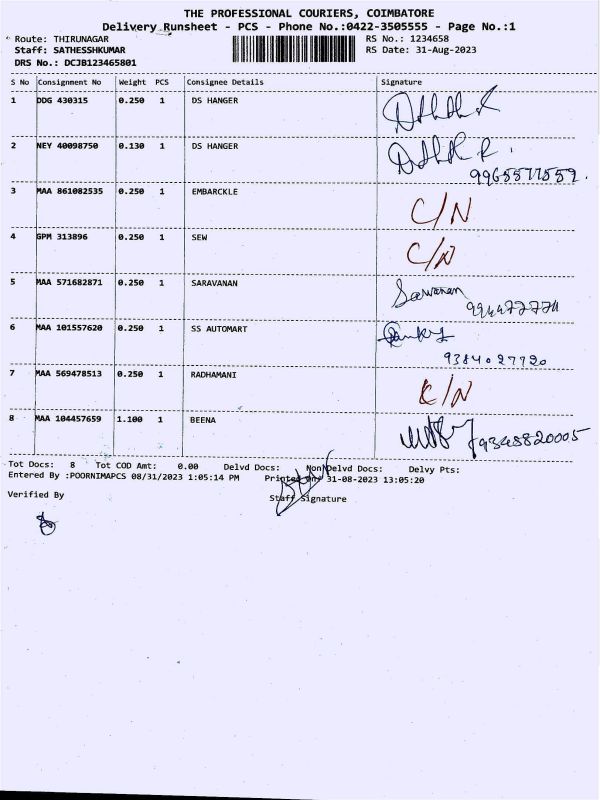 THE PROFESSIONAL COURIERS, COIMBATORE
Delivery Runsheet - PCS - Phone No.:0422-3505555 - Page No.:1
Route: THIRUNAGAR RS No.: 1234658
Staff: SATHESSHKUMAR RS Date: 31-Aug-2023
DRS No.: DCJB123465801
S No Consignment No Weight PCS Consignee Details Signature
1 DDG 430315 0.250 1 DS HANGER
2 NEY 40098750 0.130 1 DS HANGER
9965577559.
3 MAA 861082535 0.250 1 EMBARCKLE C/N
4 GPM 313896 0.250 1 SEW C/N
5 MAA 571682871 0.250 1 SARAVANAN Saravanan
6 MAA 101557620 0.250 1 SS AUTOMART
9384027720
7 MAA 569478513 0.250 1 RADHAMANI C/N
8 MAA 104457659 1.100 1 BEENA 9345820005
Tot Docs: 8 Tot COD Amt: 0.00 Delvd Docs: NonDelvd Docs: Delvy Pts:
Entered By :POORNIMAPCS 08/31/2023 1:05:14 PM Printed On: 31-08-2023 13:05:20
Verified By Staff Signature